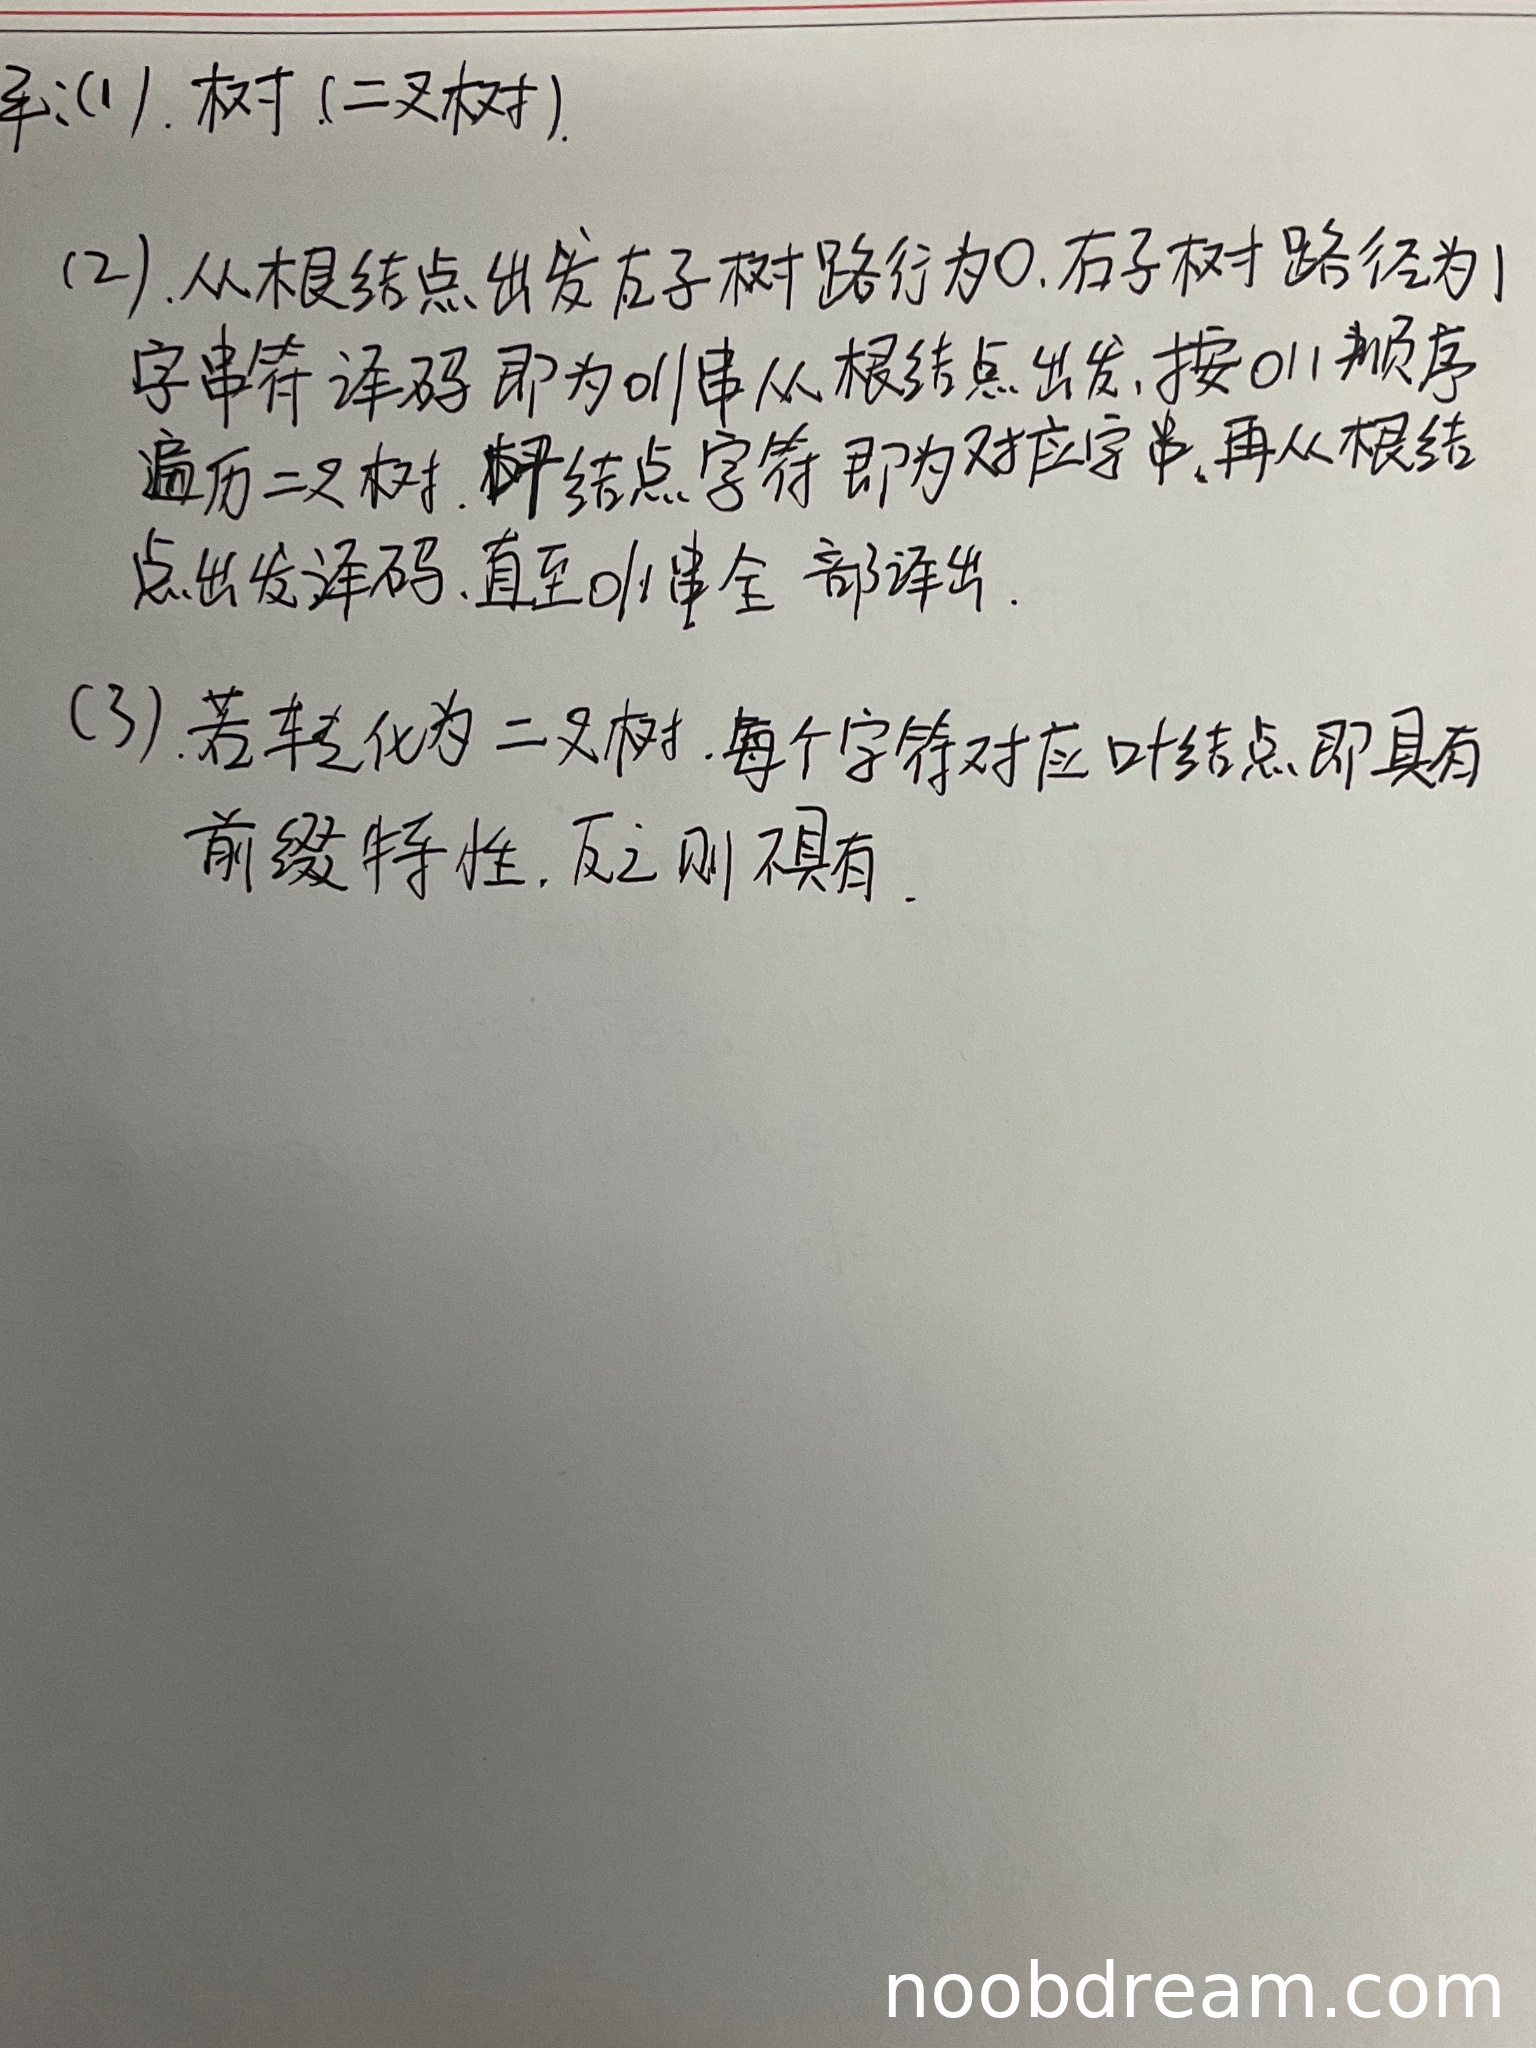 解:(1).树(二叉树).
(2).从根结点出发左子树路行为0.右子树路径为1
字串符译码即为0/1串从根结点出发,按0/1顺序
遍历二叉树.结点字符即为对应字串,再从根结
点出发译码、直至0/1串全部译出.
(3).若转化为二叉树.每个字符对应叶结点即具有
前缀特性.反之则不具有.
noobdream.com